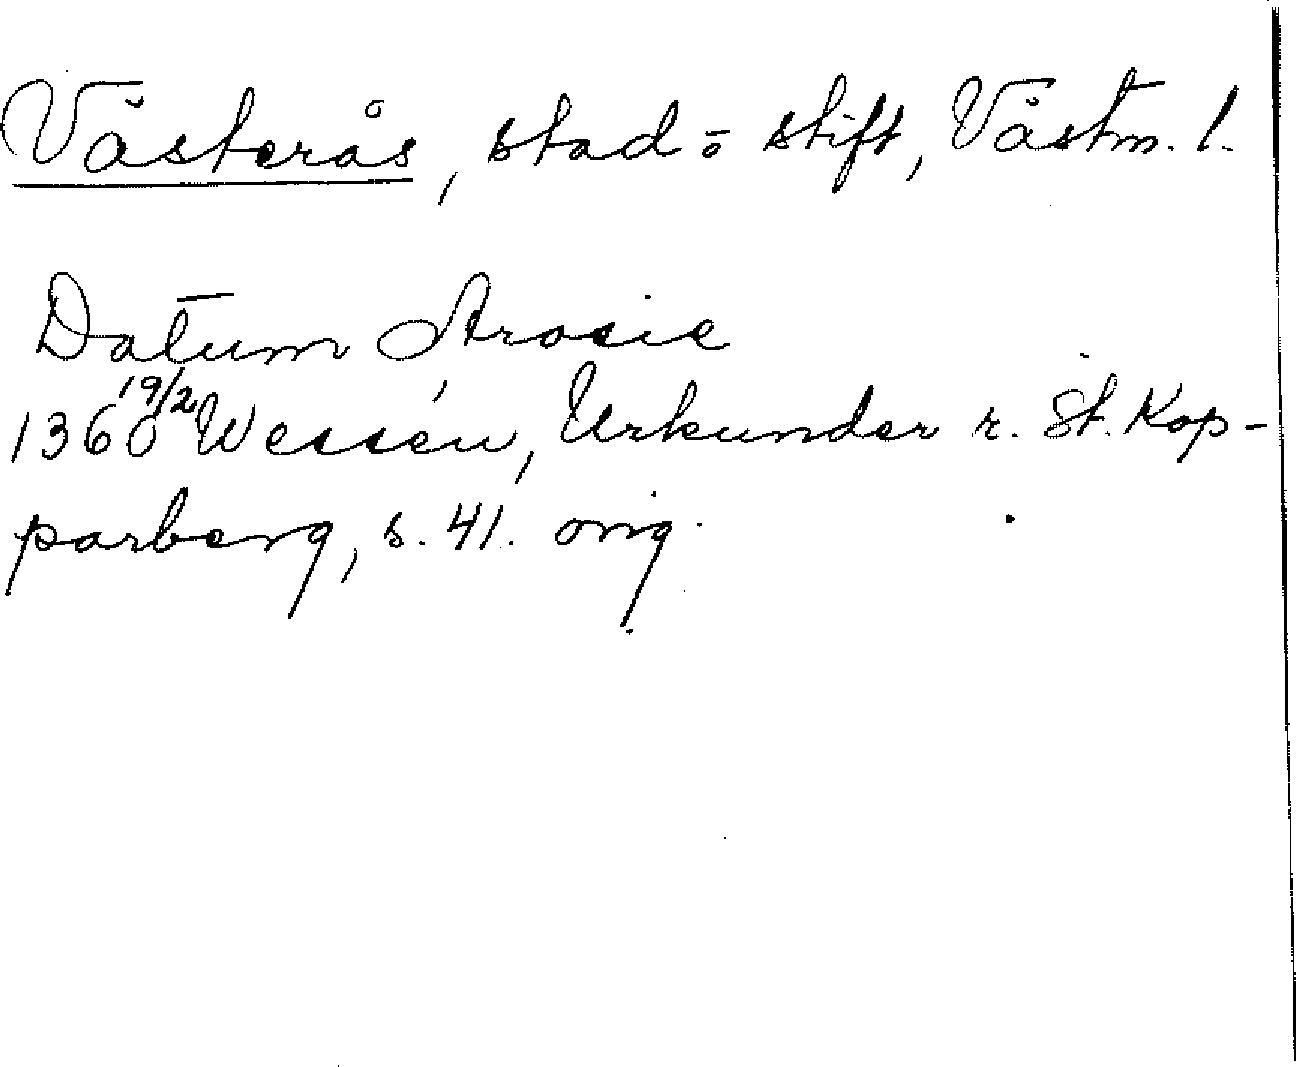 Västerås, stad o stift, Västm. l.
Datum Arosie
1360 19/2 Wessén, Urkunder r. St. Kop-
parberg, s. 41. orig.